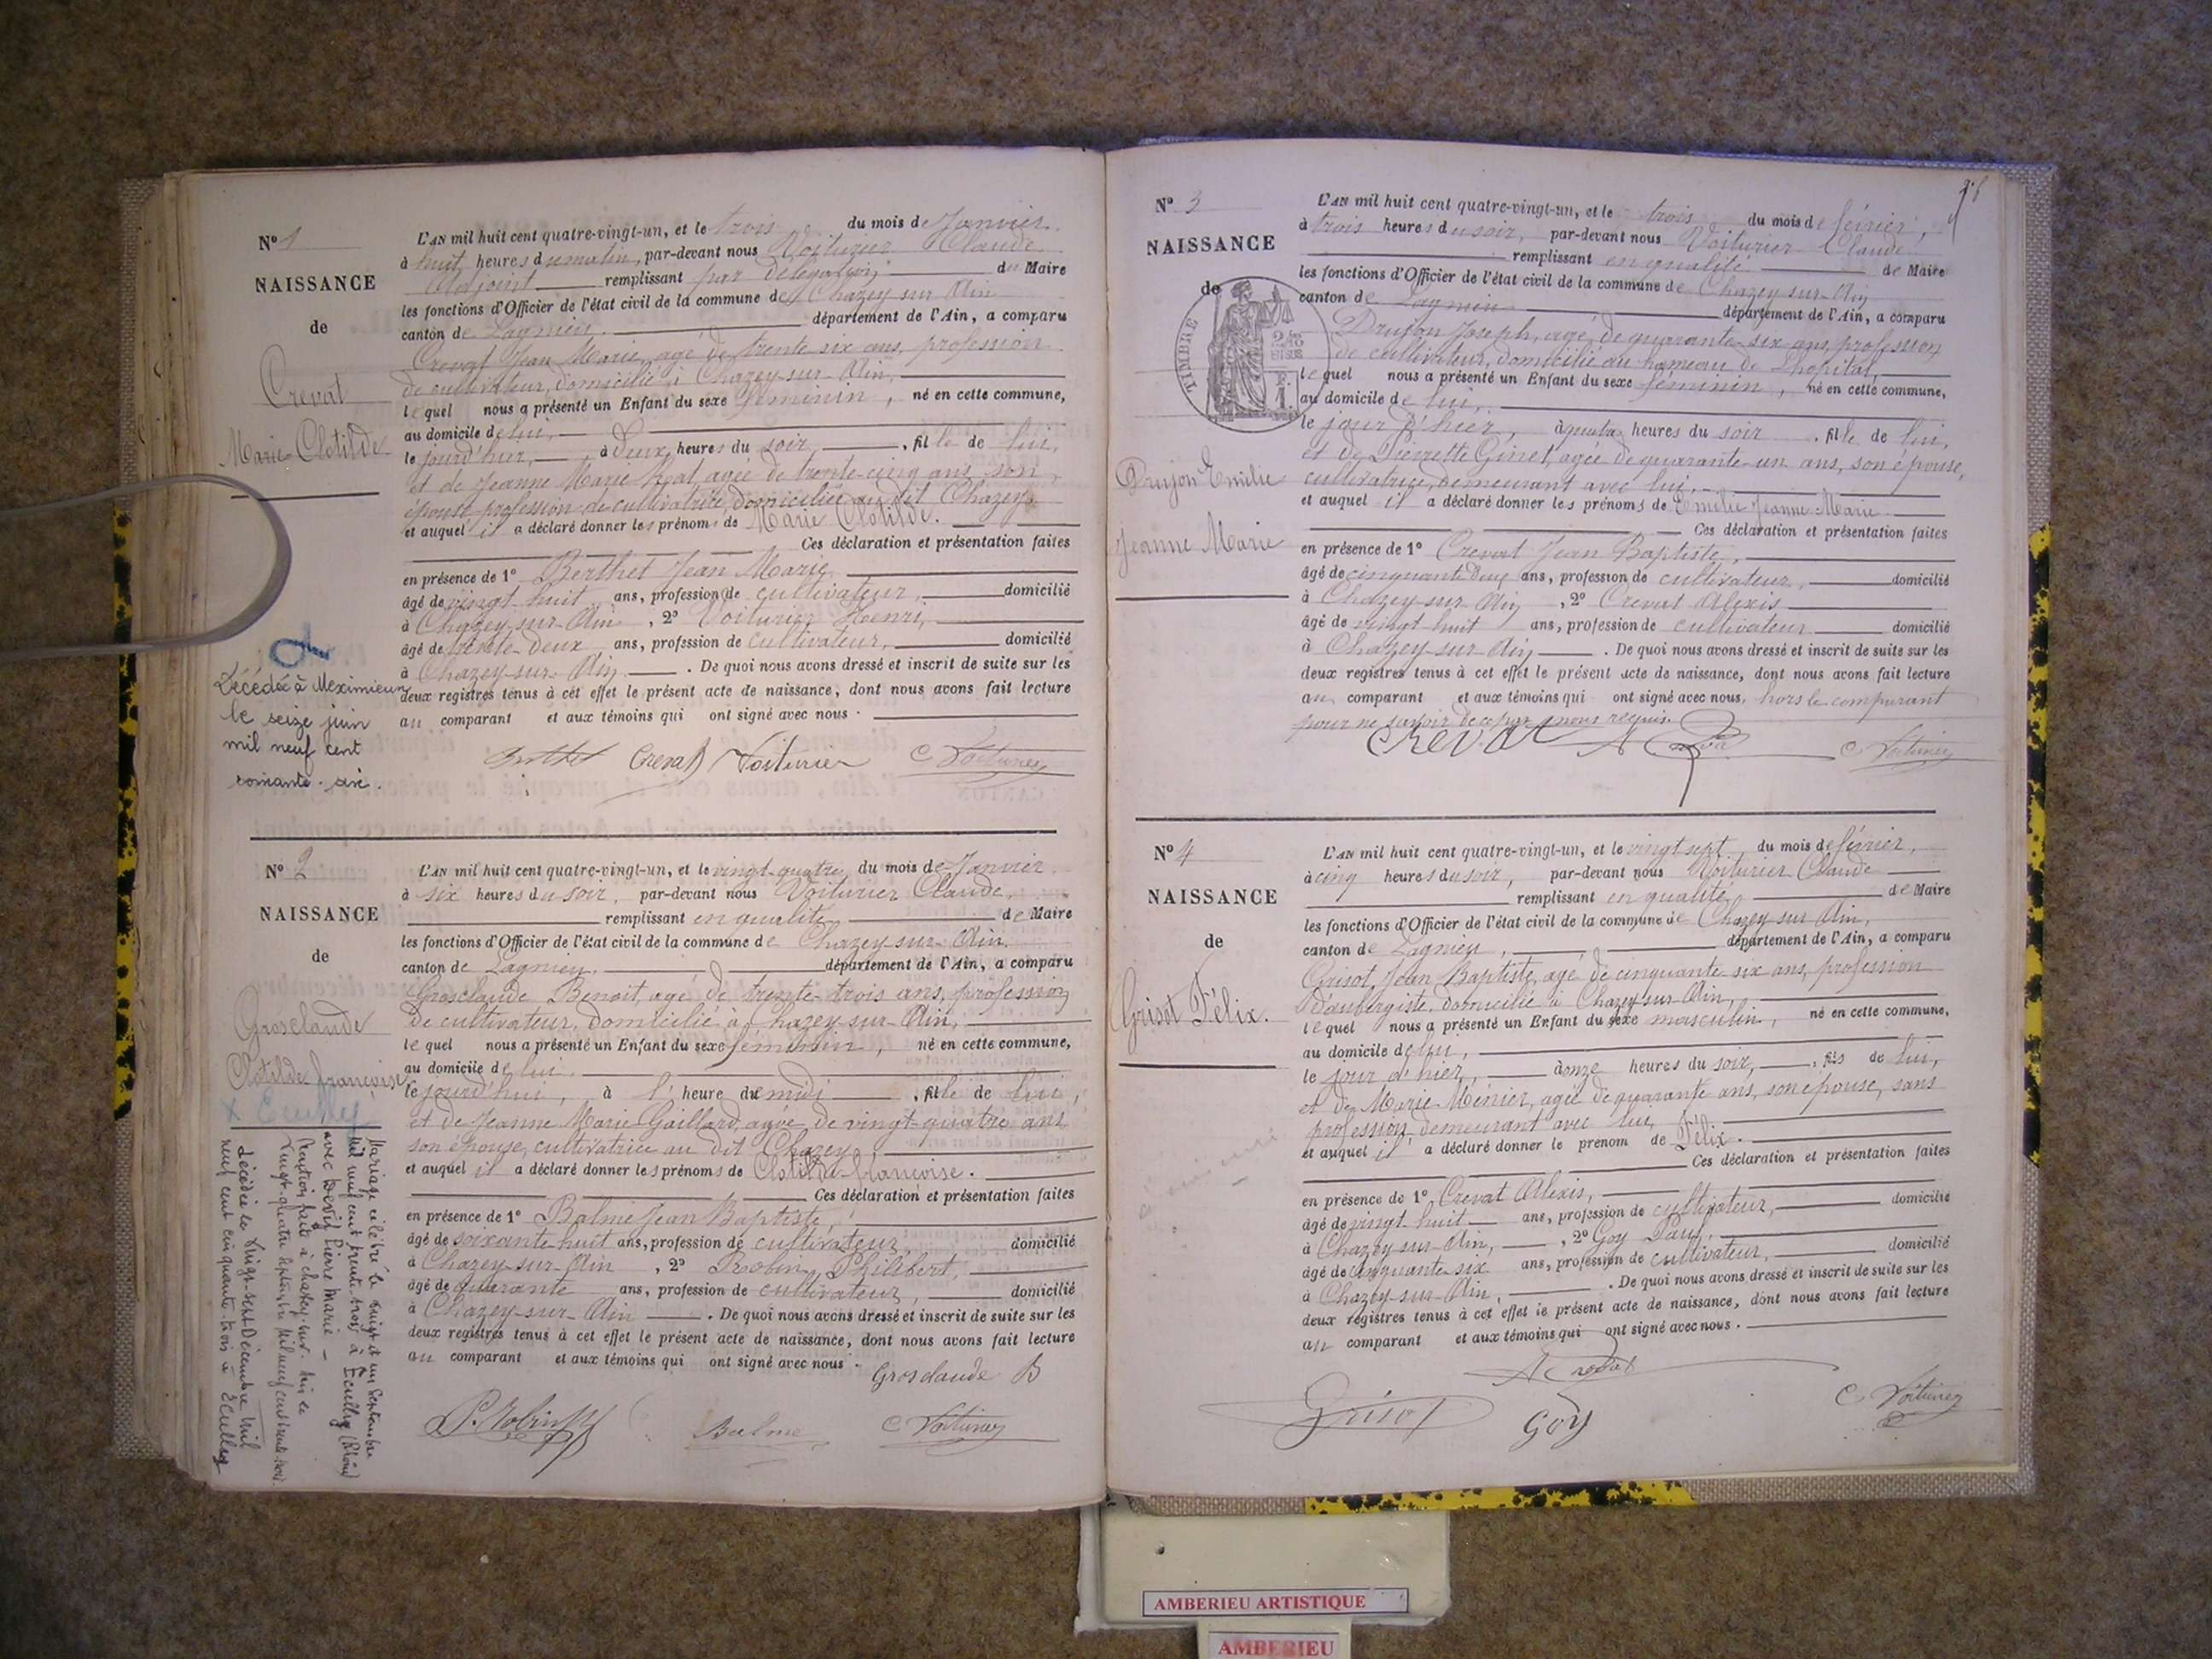 N° 1
NAISSANCE
de
Crevat
Marie-Clotilde
Décédée à Meximieux
le seize juin
mil neuf cent
soixante-six.
L'AN mil huit cent quatre-vingt-un, et le trois du mois de Janvier.
à huit heures du matin, par-devant nous Voiturier Claude
Adjoint remplissant par délégation du Maire
les fonctions d'Officier de l'état civil de la commune de Chazey sur Ain
canton de Lagnieu. département de l'Ain, a comparu
Crevat Jean Marie, agé de trente six ans, profession
de cultivateur, domicilié à Chazey-sur-Ain,
lequel nous a présenté un Enfant du sexe féminin, né en cette commune,
au domicile de lui,
le jour d'hier, à deux heures du soir, fille de lui,
et de Jeanne Marie agée de trente-cinq ans, son
épouse profession de cultivatrice, domiciliée au dit Chazey.
et auquel il a déclaré donner les prénoms de Marie Clotilde.
Ces déclaration et présentation faites
en présence de 1° Berthet Jean Marie
âgé de vingt huit ans, profession de cultivateur, domicilié
à Chazey-sur-Ain, 2° Voiturier Henri,
âgé de trente-deux ans, profession de cultivateur, domicilié
à Chazey-sur-Ain. De quoi nous avons dressé et inscrit de suite sur les
deux registres tenus à cet effet le présent acte de naissance, dont nous avons fait lecture
au comparant et aux témoins qui ont signé avec nous.
Berthet Crevat Voiturier C Voiturier
N° 2
NAISSANCE
de
Grosclaude
Clotilde françoise
x Ecully
Mariage célébré le vingt et un Septembre
mil neuf cent trente trois à Ecully (Rhône)
avec Pierre Marie –
Mention faite à chazey-sur-Ain le
Vingt-quatre Septembre Mil neuf cent trente trois
Décédée le Vingt-sept Décembre Mil
neuf cent cinquante-trois à Ecully
L'AN mil huit cent quatre-vingt-un, et le vingt-quatre du mois de Janvier
à six heures du soir, par-devant nous Voiturier Claude,
remplissant en qualité de Maire
les fonctions d'Officier de l'état civil de la commune de Chazey-sur-Ain.
canton de Lagnieu. département de l'Ain, a comparu
Grosclaude Benoit, agé de trente-trois ans, profession
de cultivateur, domicilié à Chazey-sur-Ain,
lequel nous a présenté un Enfant du sexe féminin, né en cette commune,
au domicile de lui.
le jourd'hui, à l' heure de midi, fille de lui,
et de Jeanne Marie Gaillard, agée de vingt-quatre ans
son épouse, cultivatrice au dit Chazey
et auquel il a déclaré donner les prénoms de Clotilde-françoise.
Ces déclaration et présentation faites
en présence de 1° Balme Jean Baptiste,
âgé de soixante-huit ans, profession de cultivateur domicilié
à Chazey-sur-Ain, 2° Robin Philibert,
âgé de quarante ans, profession de cultivateur, domicilié
à Chazey-sur-Ain. De quoi nous avons dressé et inscrit de suite sur les
deux registres tenus à cet effet le présent acte de naissance, dont nous avons fait lecture
au comparant et aux témoins qui ont signé avec nous.
Grosclaude B
P. Robin Balme C Voiturier
N° 3
NAISSANCE
de
TIMBRE
Drujon Emilie
Jeanne Marie
L'AN mil huit cent quatre-vingt-un, et le trois du mois de février,
à trois heures du soir, par-devant nous Voiturier Claude
remplissant en qualité de Maire
les fonctions d'Officier de l'état civil de la commune de Chazey-sur-Ain
canton de Lagnieu département de l'Ain, a comparu
Drujon Joseph, agé de quarante-six ans, profession
de cultivateur, domicilié au hameau de Lhopital,
lequel nous a présenté un Enfant du sexe féminin, né en cette commune,
au domicile de lui,
le jour d'hier, à quatre heures du soir, fille de lui,
et de Pierrette Ginet, agée de quarante-un ans, son épouse,
cultivatrice, demeurant avec lui.
et auquel il a déclaré donner les prénoms de Emilie Jeanne-Marie
Ces déclaration et présentation faites
en présence de 1° Crevat Jean Baptiste,
âgé de cinquante deux ans, profession de cultivateur, domicilié
à Chazey-sur-Ain, 2° Crevat Alexis
âgé de vingt huit ans, profession de cultivateur domicilié
à Chazey-sur-Ain. De quoi nous avons dressé et inscrit de suite sur les
deux registres tenus à cet effet le présent acte de naissance, dont nous avons fait lecture
au comparant et aux témoins qui ont signé avec nous, hors le comparant
pour ne savoir de ce par nous requis.
Crevat A Crevat C Voiturier
N° 4
NAISSANCE
de
Grisot Félix.
L'AN mil huit cent quatre-vingt-un, et le vingt sept du mois de février,
à cinq heures du soir, par-devant nous Voiturier Claude
remplissant en qualité de Maire
les fonctions d'Officier de l'état civil de la commune de Chazey sur Ain,
canton de Lagnieu, département de l'Ain, a comparu
Grisot, Jean Baptiste, agé de cinquante-six ans, profession
d'aubergiste, domicilié à Chazey-sur-Ain,
lequel nous a présenté un Enfant du sexe masculin, né en cette commune,
au domicile de lui,
le jour d'hier, à onze heures du soir, fils de lui,
et de Marie Ménier, agée de quarante ans, son épouse, sans
profession demeurant avec lui,
et auquel il a déclaré donner le prénom de Félix.
Ces déclaration et présentation faites
en présence de 1° Crevat Alexis,
âgé de vingt-huit ans, profession de cultivateur, domicilié
à Chazey-sur-Ain, 2° Goy Paul,
âgé de cinquante-six ans, profession de cultivateur, domicilié
à Chazey-sur-Ain, De quoi nous avons dressé et inscrit de suite sur les
deux registres tenus à cet effet le présent acte de naissance, dont nous avons fait lecture
au comparant et aux témoins qui ont signé avec nous.
A Crevat
Grisot Goy C Voiturier
AMBERIEU ARTISTIQUE
AMBERIEU